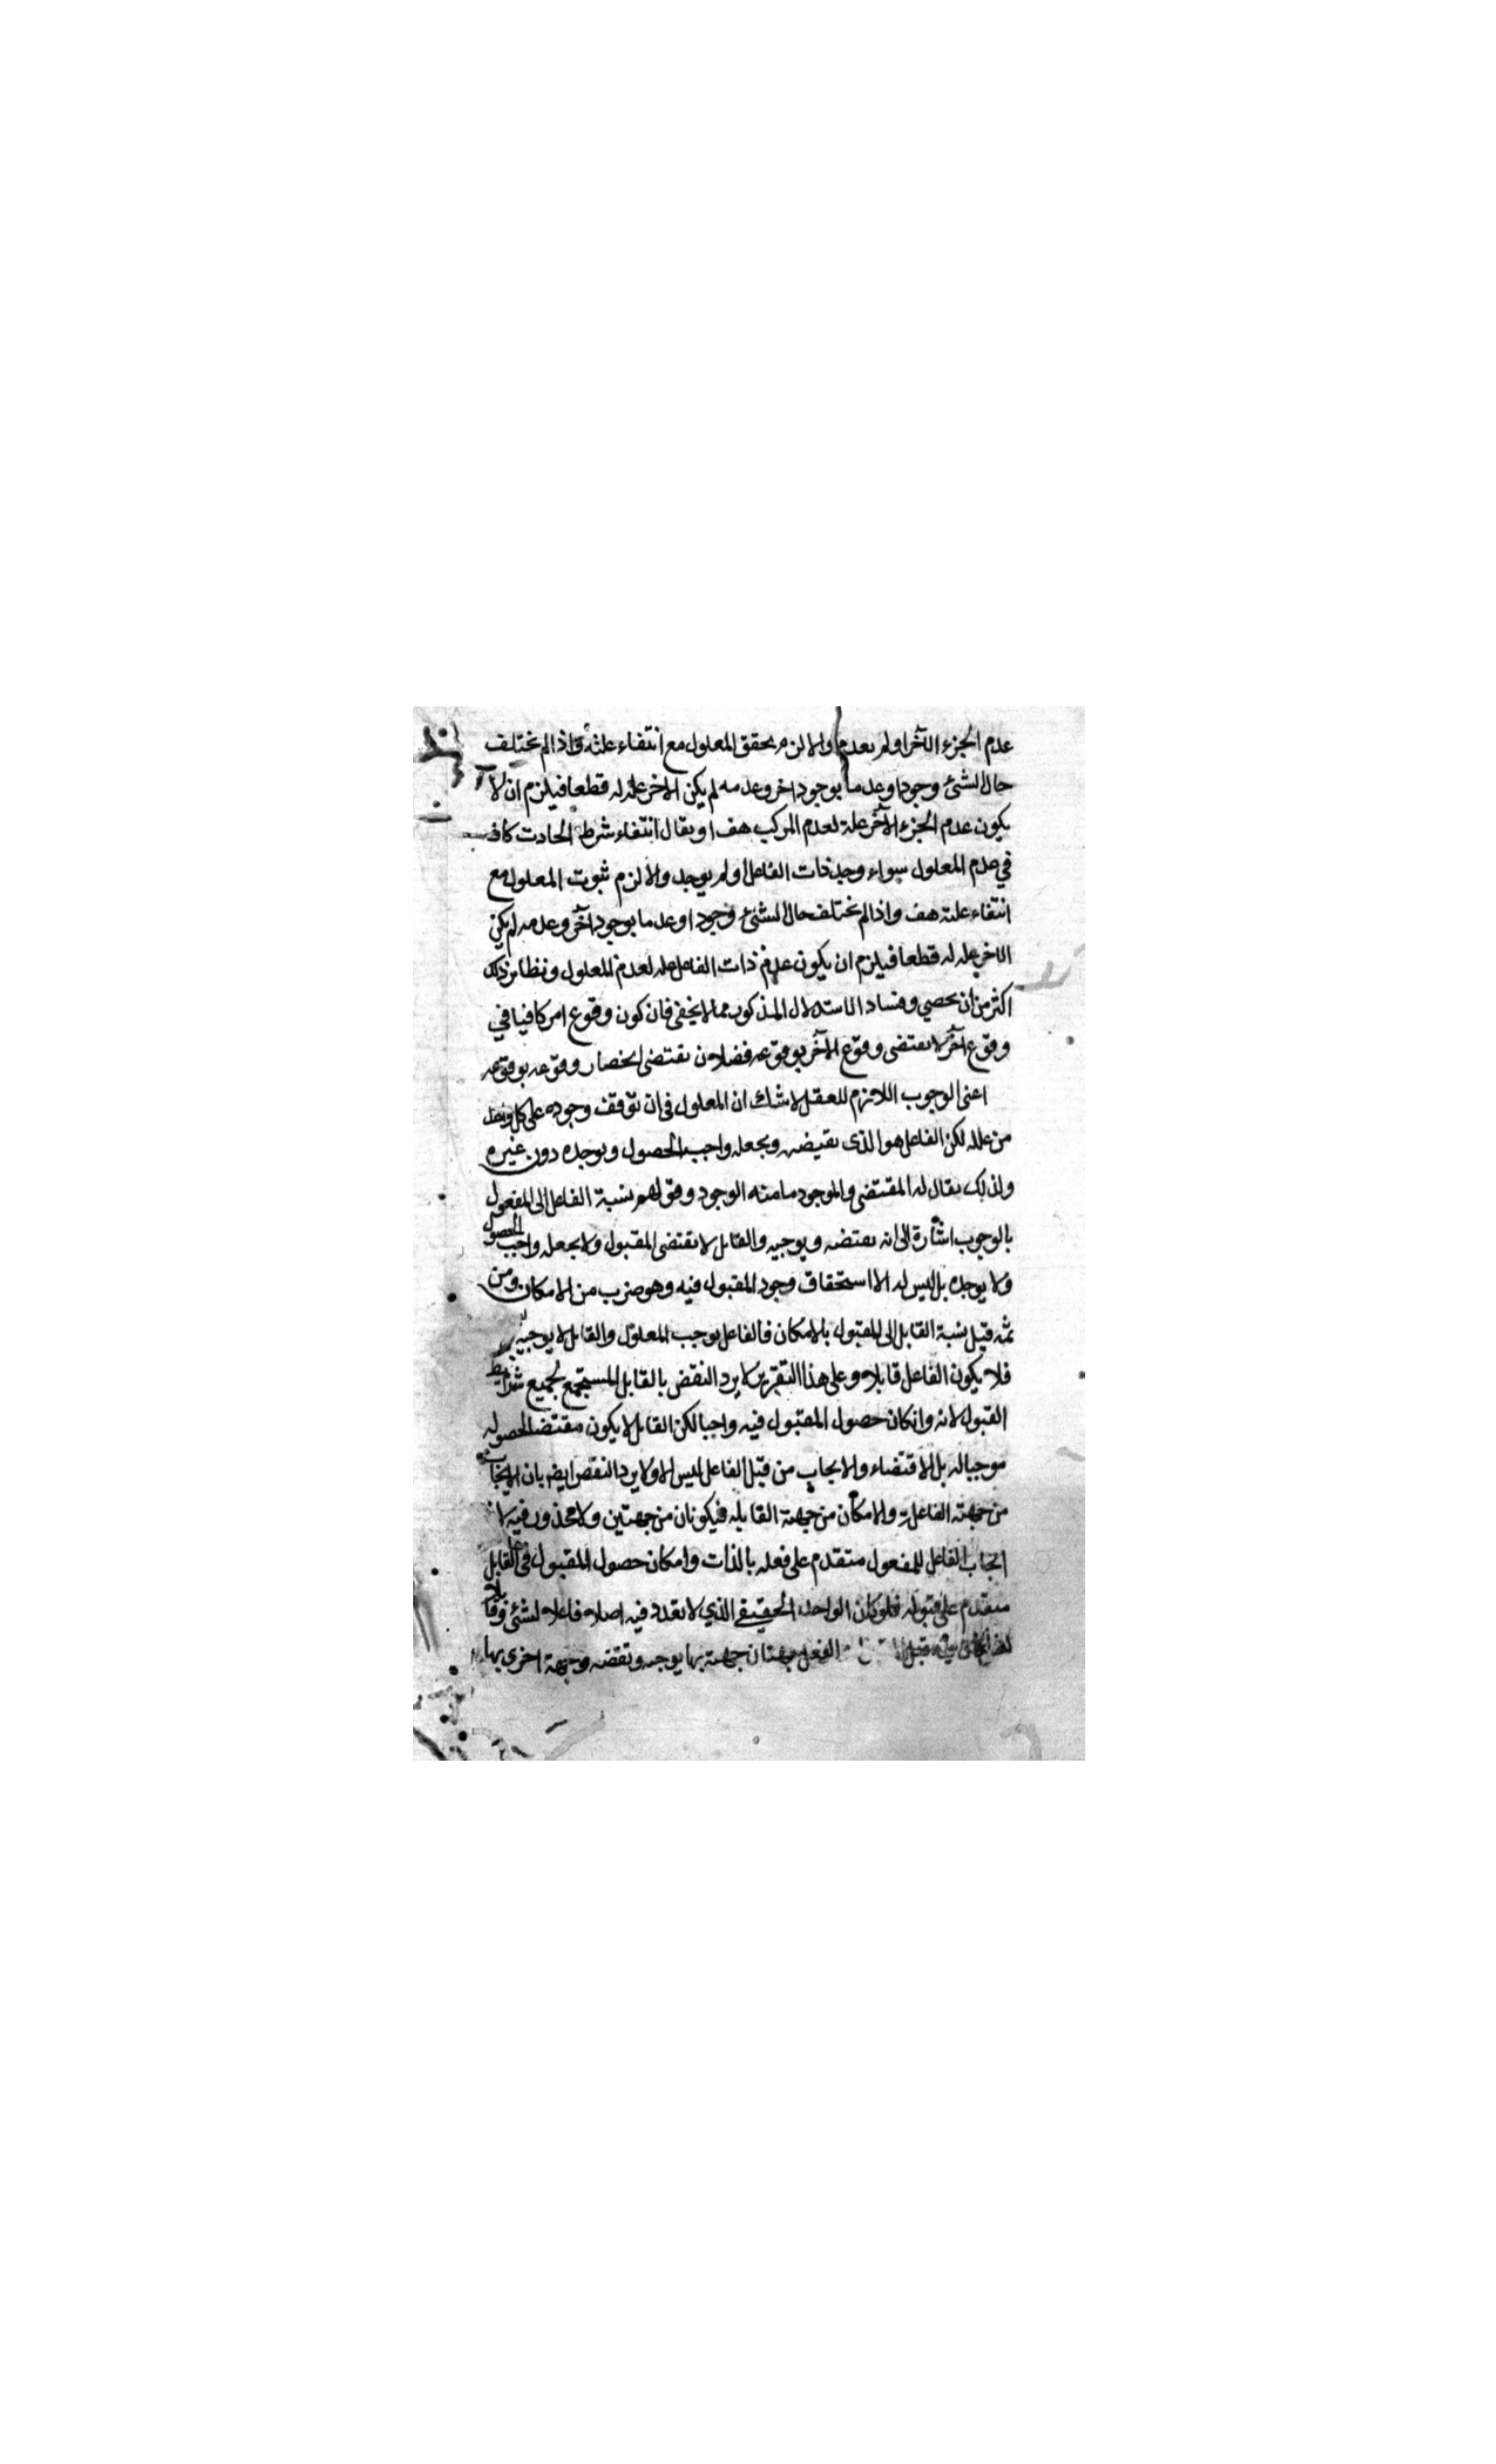 عدم الجزء الآخر او لم يعدم والا لزم تحقق المعلول مع انتفاء علته واذا لم يختلف
حال الشئ وجودا وعدما بوجود اخر وعدمه لم يكن الاخر علة له قطعا فيلزم ان لا
يكون عدم الجزء الآخر علة لعدم المركب هف او يقال انتفاء شرط الحادث كاف
في عدم المعلول سواء وجد ذات الفاعل او لم يوجد والا لزم ثبوت المعلول مع
انتفاء علته هف واذا لم يختلف حال الشئ وجودا وعدما بوجود آخر وعدمه لم يكن
الاخر علة له قطعا فيلزم ان يكون عدم ذات الفاعل علة لعدم المعلول ونظائر ذلك
اكثر من ان يحصى وفساد الاستدلال المذكور مما لا يخفى فان كون وقوع امر كافيا في
وقوع آخر لا يقتضى وقوع الآخر بوقوعه فضلا ان يقتضى انحصار وقوعه بوقوعه
اعنى الوجوب اللازم للعقل لا شك ان المعلول في ان توقف وجوده على كل واحد
من علله لكن الفاعل هو الذى يقتضيه ويجعله واجب الحصول ويوجده دون غيره
ولذلك يقال له المقتضى والموجود ما منه الوجود وقولهم نسبة الفاعل الى المفعول
بالوجوب اشارة الى انه يقتضيه ويوجبه والقابل لا يقتضى المقبول ولا يجعله واجب الحصول
ولا يوجده بل ليس له الا استحقاق وجود المقبول فيه وهو ضرب من الامكان ومن
ثمه قيل نسبة القابل الى المقبول بالامكان فالفاعل يوجب المعلول والقابل لا يوجبه
فلا يكون الفاعل قابلا وعلى هذا التقرير لا يرد النقض بالقابل المستجمع لجميع شرايط
القبول لانه وان كان حصول المقبول فيه واجبا لكن القابل لا يكون مقتضيا لحصوله
موجبا له بل الاقتضاء والايجاب من قبل الفاعل ليس الا ولا يرد النقض ايضا بان الايجاب
من جهته الفاعلية والامكان من جهة القابلية فيكونان من جهتين ولا محذور فيه لان
ايجاب الفاعل للمفعول متقدم على فعله بالذات وامكان حصول المقبول في القابل
متقدم على قبوله فلو كان الواحد الحقيقي الذي لا تعدد فيه اصلا فاعلا لشئ وقابلا
الفعل جهتان جهة بها يوجبه ويقتضيه وجهة اخرى بها